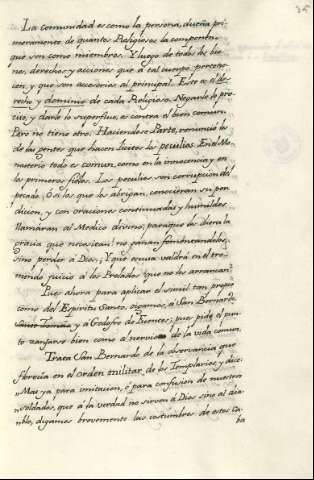 35
La comunidad es como la persona, dueña pri-
meramente de quantos Religiosos la componen
que son como miembros. Y luego de todos los bie-
nes, derechos y acciones que á tal cuerpo pertene-
cen, y que son accesorias al principal. Este es el de-
recho y dominio de cada Religioso. Negarle lo pre-
ciso, y darle lo superfluo, es contra el bien comun.
Pero no tiene otro. Haciendose Parte, renunció lo
de las gentes que hacen licitos los peculios. En el Mo-
nasterio todo es comun, como en la innocencia y en
los primeros fieles. Los peculios son corrupcion del
pecado. O si los que los abrigan, conocieran su per-
dicion, y con oraciones continuadas y humildes
llamáran al Medico divino, para que les diera la
gracia que necesitan! no ganan fomentandolos,
sino perder á Dios. ¿Y que excusa valdrá en el tre-
mendo juicio á los Prelados que no los arrancan?
Pues ahora para aplicar el simil tan propio
como del Espiritu Santo, oigamos á San Bernardo,
y á Godofre de Fuentes; pues pide el pun-
to zanjarse bien como el nervio de la vida comun.
Trata San Bernardo de la observancia que
florecia en el Orden militar de los Templarios, y dice:
"Mas ya para imitacion, ó para confusion de nuestros
"soldados, que á la verdad no sirven á Dios sino al dia-
"blo, digamos brevemente las costumbres de estos Ca-
ba